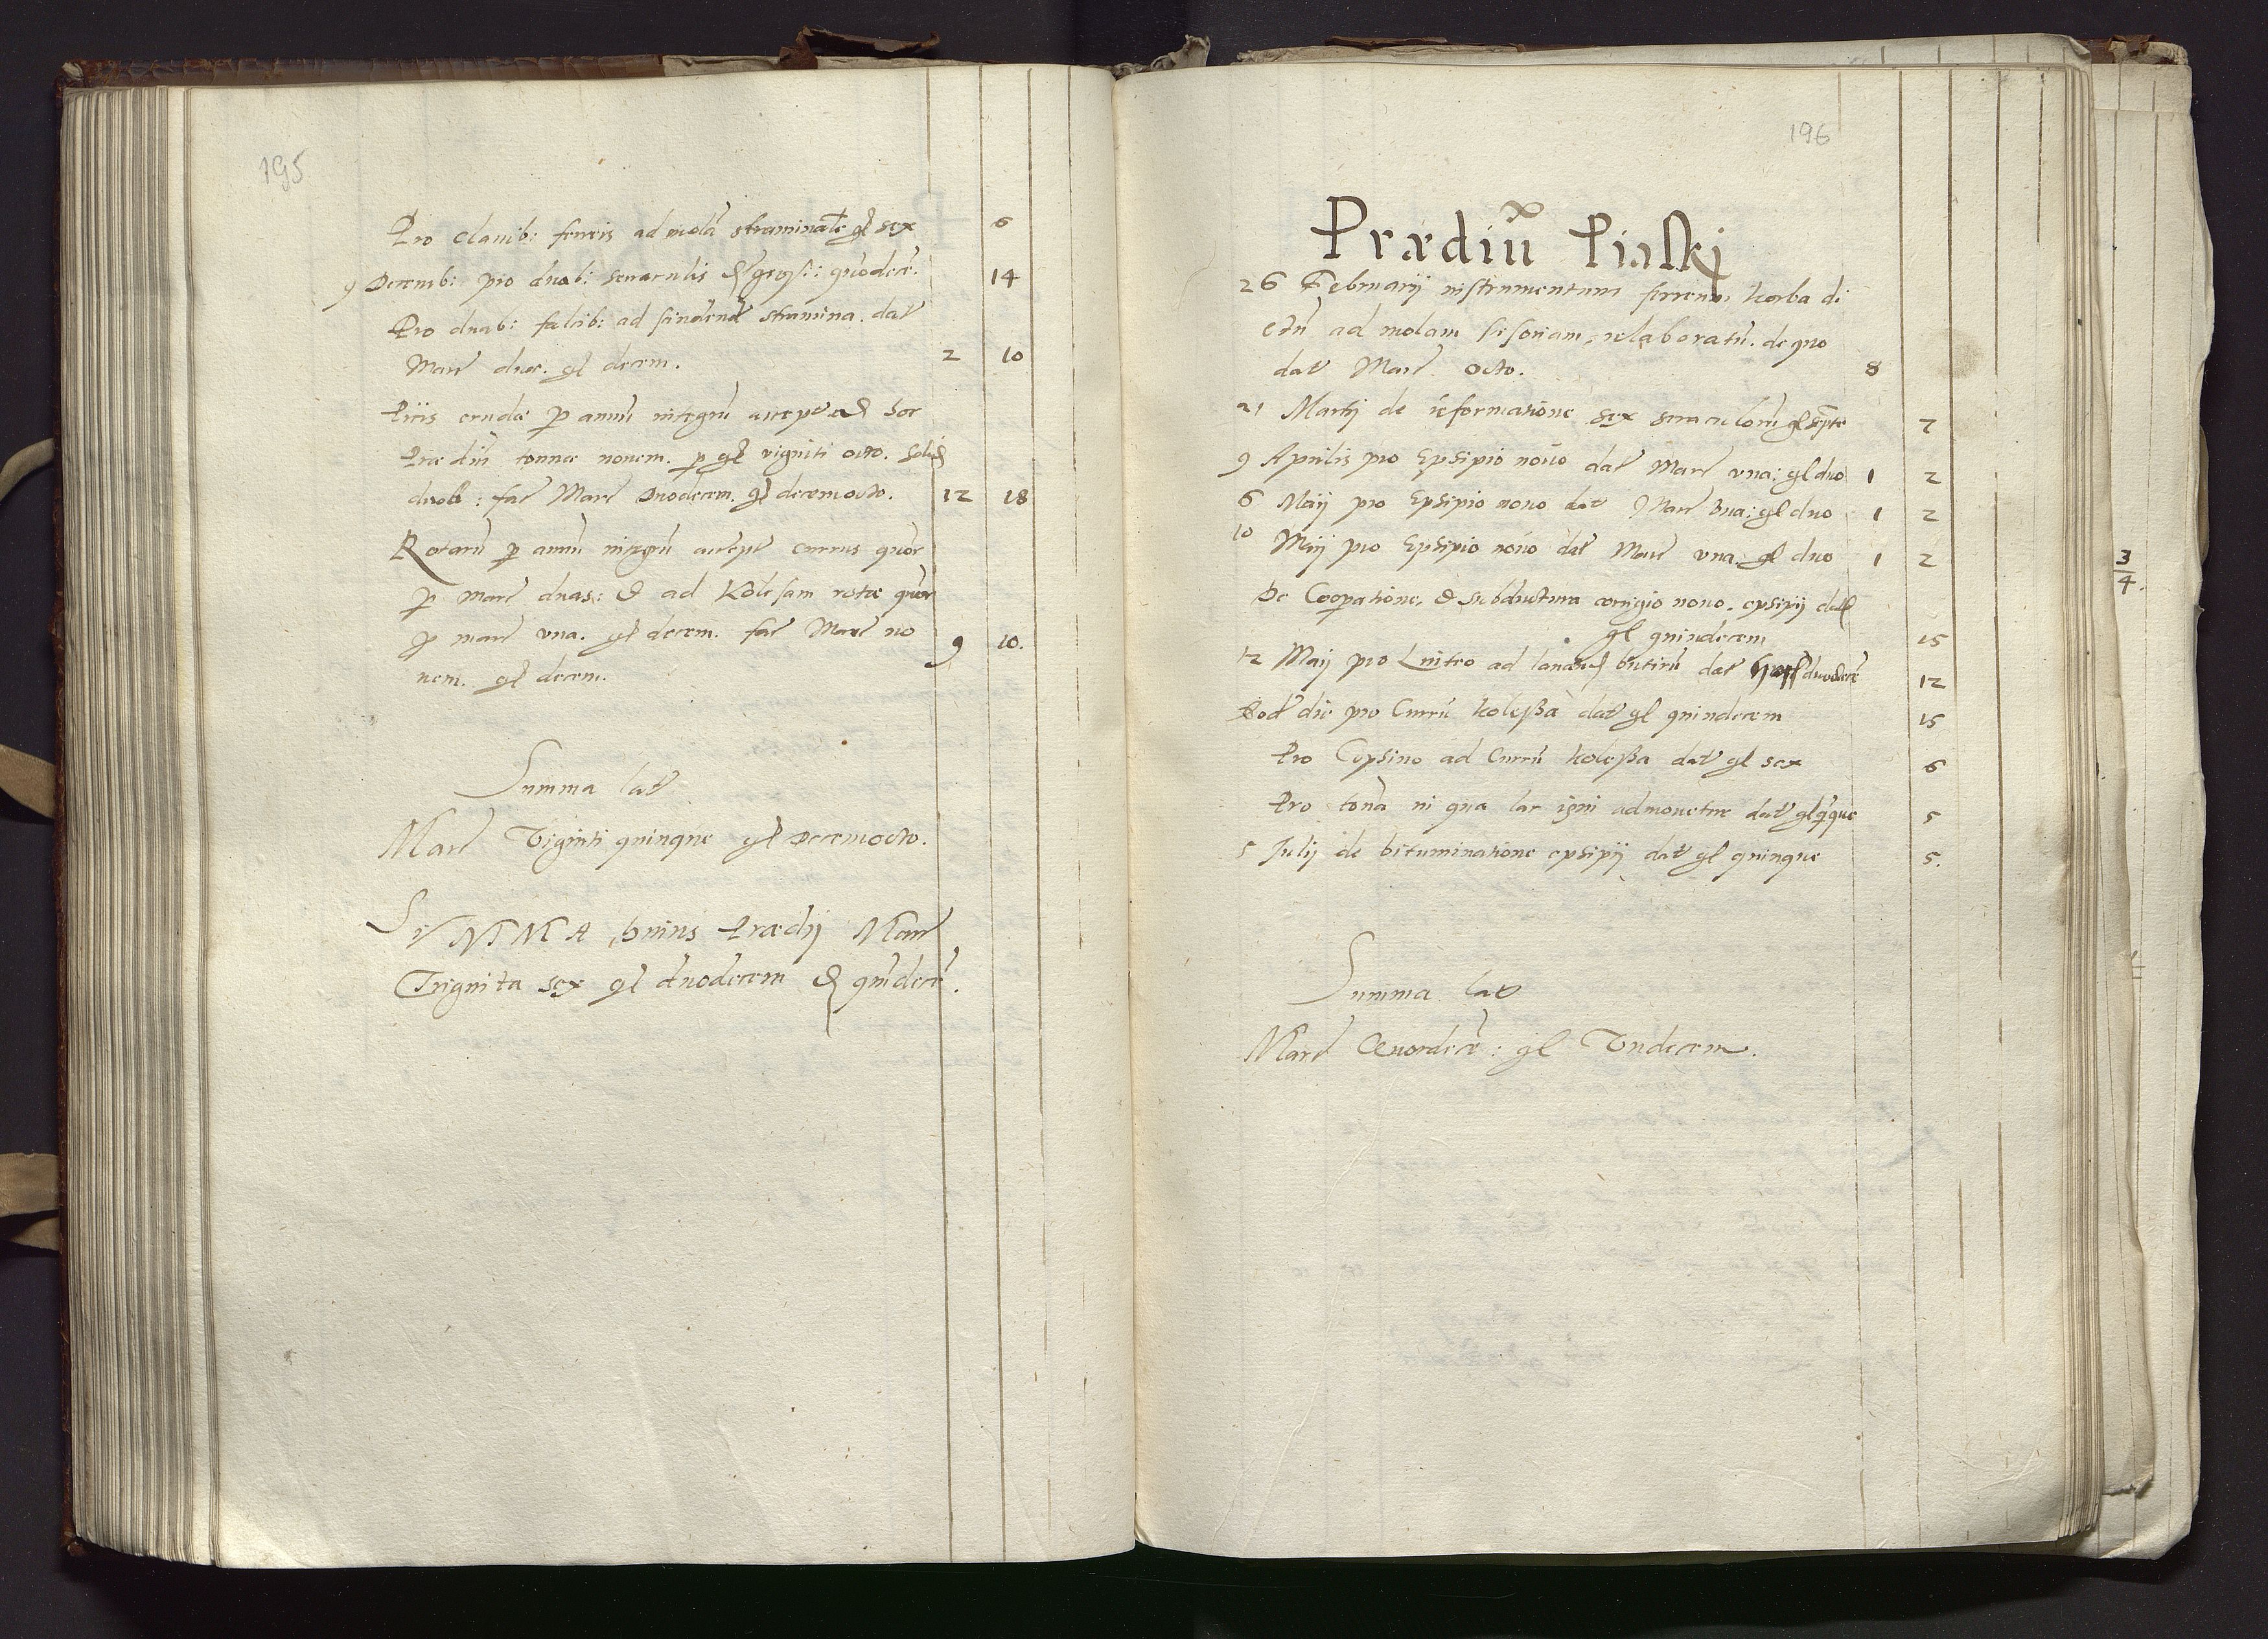 195
Pro clavib: ferreis ad molã straminalẽ gł sex 6
9 Decemb: pro duab: seraculis gross: quodecẽ. 14
Pro duab: falcib: ad sindend stramina. dat
Marc duae. gł decem. 2 10
Picis crudae p annũ integrũ accept ad hoc
Praediũ tonnae novem. p gł viginti octo. solid
duob: fac Marc Duodecem. gł decemocto. 12 18
Rotarũ p annũ integrũ accept currus quor
p marc duas: & ad Kolesam rotae quor
p marc una. gł decem. fac Marc no
nem. gł decem. 9 10.
Summa lat
Marc Viginti quinque gł Decemocto.
SUMMA huius Praedij Marc
Triginta sex gł duodecem quindecẽ.
196
Praediũ Piaskj
26 Februarij instrumentum ferreum korba di
ctũ ad molam sisoriam, elaboratũ. de quo
dat Marc octo. 8
21 Martij de reformatione sex seraculorũ gł septẽ 7
9 Aprilis pro Epsipio novo dat Marc una: gł duo 1 2
6 Maij pro Epsipio novo dat Marc una: gł duo 1 2
10 Maij pro Epsipio novo dat Marc una. gł duo 1 2
De Cooperatione, & subductura corrigio novo. epsipij dat
gł quindecem 15
12 Maij pro Lintro ad lavand butirũ dat duodecẽ 12
Eod die pro Currũ kolessa dat gł quindecem 15
Pro Copsino ad Currũ kolessa dat gł sex 6
Pro tonã in qua lac igni admovetur dat gł quique 5
5 Julij de bituminatione epsipij dat gł quinque 5.
Summa lat
Marc Quordecẽ: gł Undecem.
3
4.